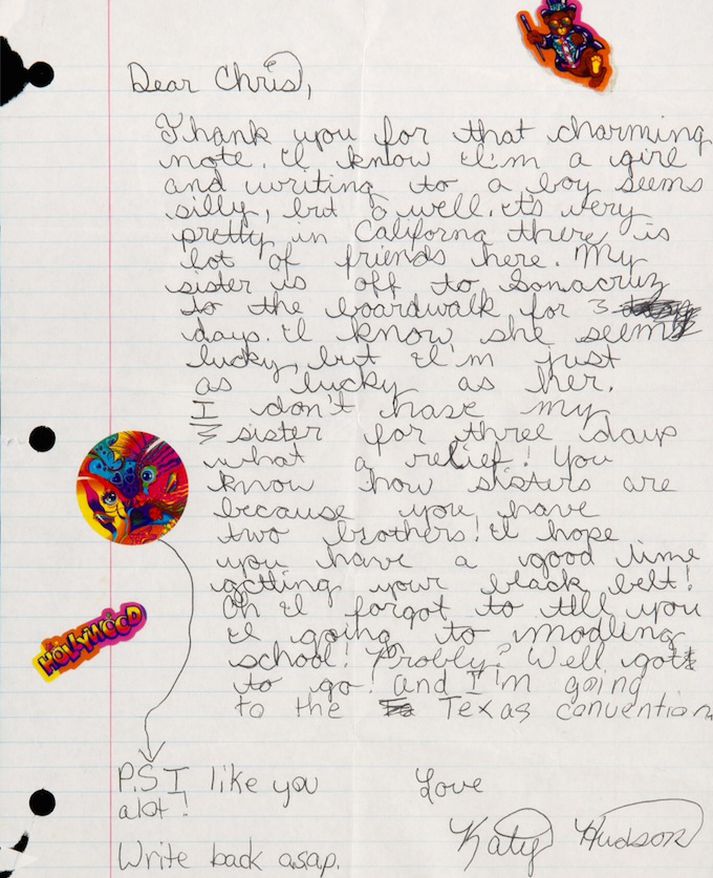 Dear Chris,
Thank you for that charming
note. I know I'm a girl
and writing to a boy seems
silly, but o well. it's very
pretty in Californa there is
lot of friends here. My
sister is off to Sonacruz
to the boardwalk for 3
days. I know she seems
lucky, but I'm just
as lucky as her.
I don't have my
sister for three days
what a relief! You
know how sisters are
because you have
two brothers! I hope
you have a good time
getting your black belt!
Oh I forgot to tell you
I going to modling
school! Probly? Well gott
to go! and I'm going
to the Texas convention
P.S I like you
alot!
Love
Katy Hudson
Write back asap.
HOLLYWOOD